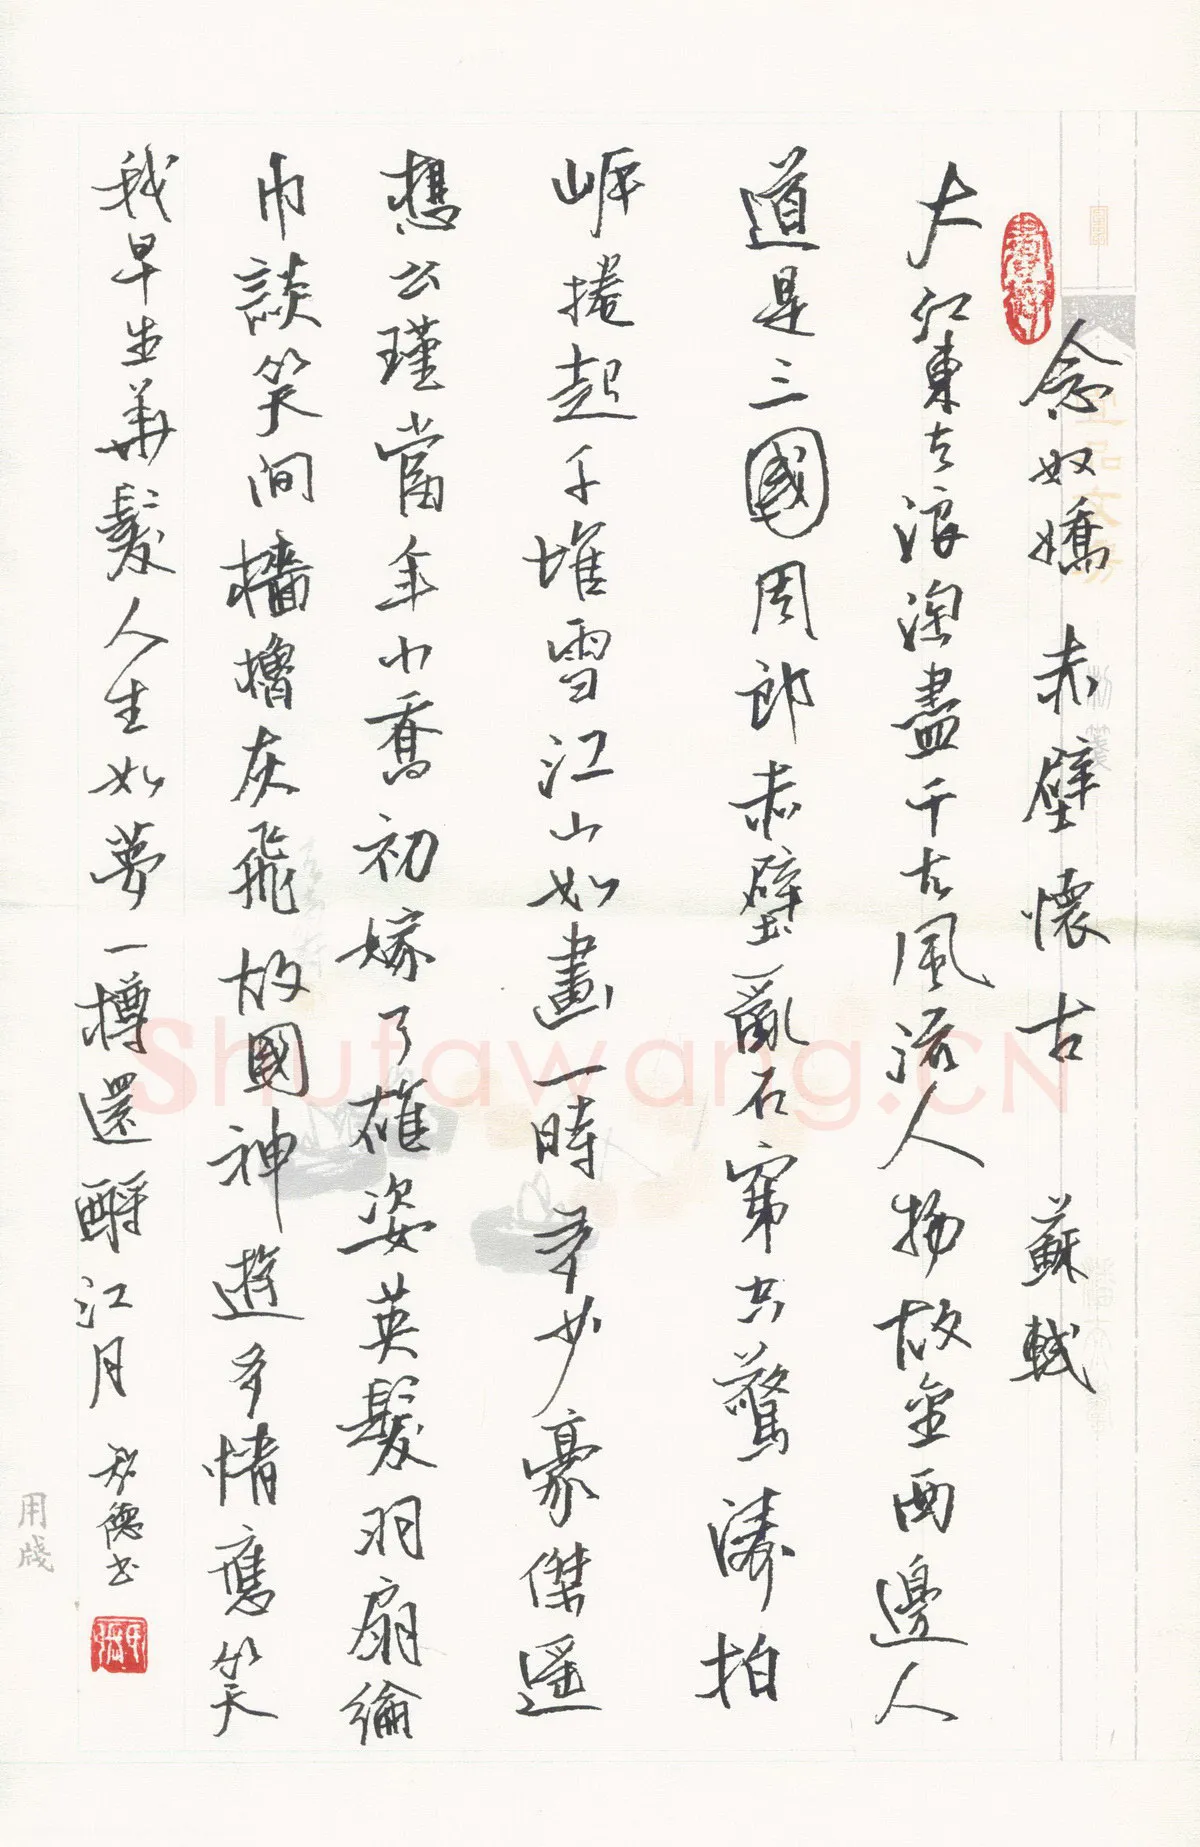 念奴嬌 赤壁懷古 蘇軾
大江東去浪淘盡千古風流人物故壘西邊人
道是三國周郎赤壁亂石穿空驚濤拍
岸捲起千堆雪江山如畫一時多少豪傑遥
想公瑾當年小喬初嫁了雄姿英發羽扇綸
巾談笑間檣櫓灰飛故國神遊多情應笑
我早生華髮人生如夢一樽還酹江月
德书
用牋
Shufawang.CN